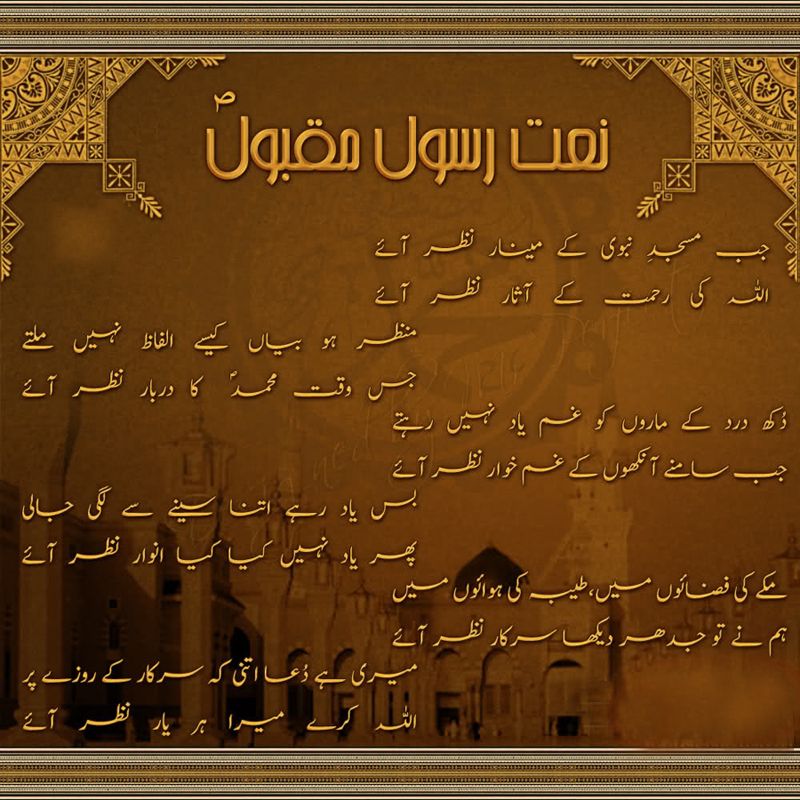 نعت رسول مقبولؐ
جب مسجدِ نبوی کے مینار نظر آئے
اللہ کی رحمت کے آثار نظر آئے
منظر ہو بیاں کیسے الفاظ نہیں ملتے
جس وقت محمدؐ کا دربار نظر آئے
دُکھ درد کے ماروں کو غم یاد نہیں رہتے
جب سامنے آنکھوں کے غم خوار نظر آئے
بس یاد رہے اتنا سینے سے لگی جالی
پھر یاد نہیں کیا کیا انوار نظر آئے
مکے کی فضائوں میں،طیبہ کی ہوائوں میں
ہم نے تو جدھر دیکھا سرکار نظر آئے
میری ہے دُعا اتنی کہ سرکار کے روزے پر
اللہ کرے میرا ہر یار نظر آئے